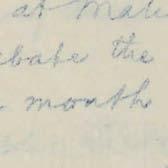 at Mal
ebate the
month